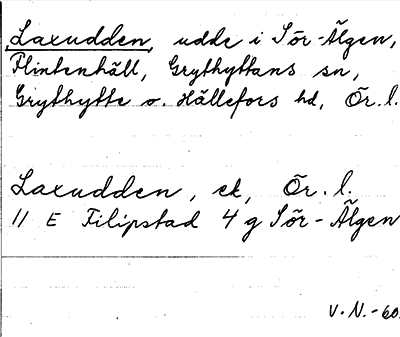 Laxudden, udde i Sör-Älgen,
Flintenhäll, Grythyttans sn,
Grythytte o. Hällefors hd, Ör. l.
Laxudden, ek, Ör. l.
11 E Filipstad 4 g Sör-Älgen
V.N.-60.